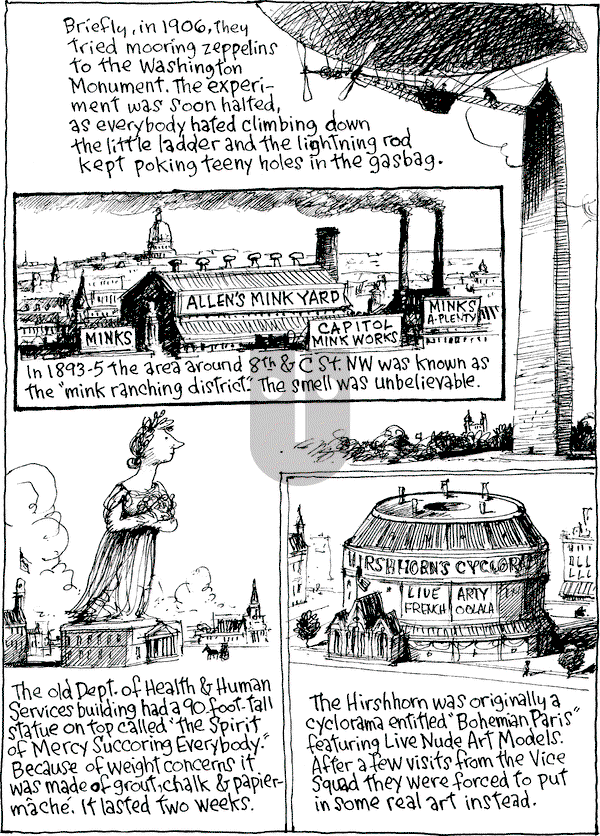 Briefly, in 1906, they
tried mooring zeppelins
to the Washington
Monument. The experi-
ment was soon halted,
as everybody hated climbing down
the little ladder and the lightning rod
kept poking teeny holes in the gasbag.
ALLEN'S MINK YARD
MINKS
CAPITOL
MINK WORKS
MINKS
A-PLENTY
In 1893-5 the area around 8th & C St. NW was known as
the "mink ranching district." The smell was unbelievable.
The old Dept. of Health & Human
Services building had a 90-foot-tall
statue on top called "the Spirit
of Mercy Succoring Everybody."
Because of weight concerns it
was made of grout, chalk & papier-
mâché. It lasted two weeks.
RSHHORN'S CYCLOR
LIVE
FRENCH
ARTY
OOLALA
The Hirshhorn was originally a
cyclorama entitled "Bohemian Paris"
featuring Live Nude Art Models.
After a few visits from the Vice
Squad they were forced to put
in some real art instead.